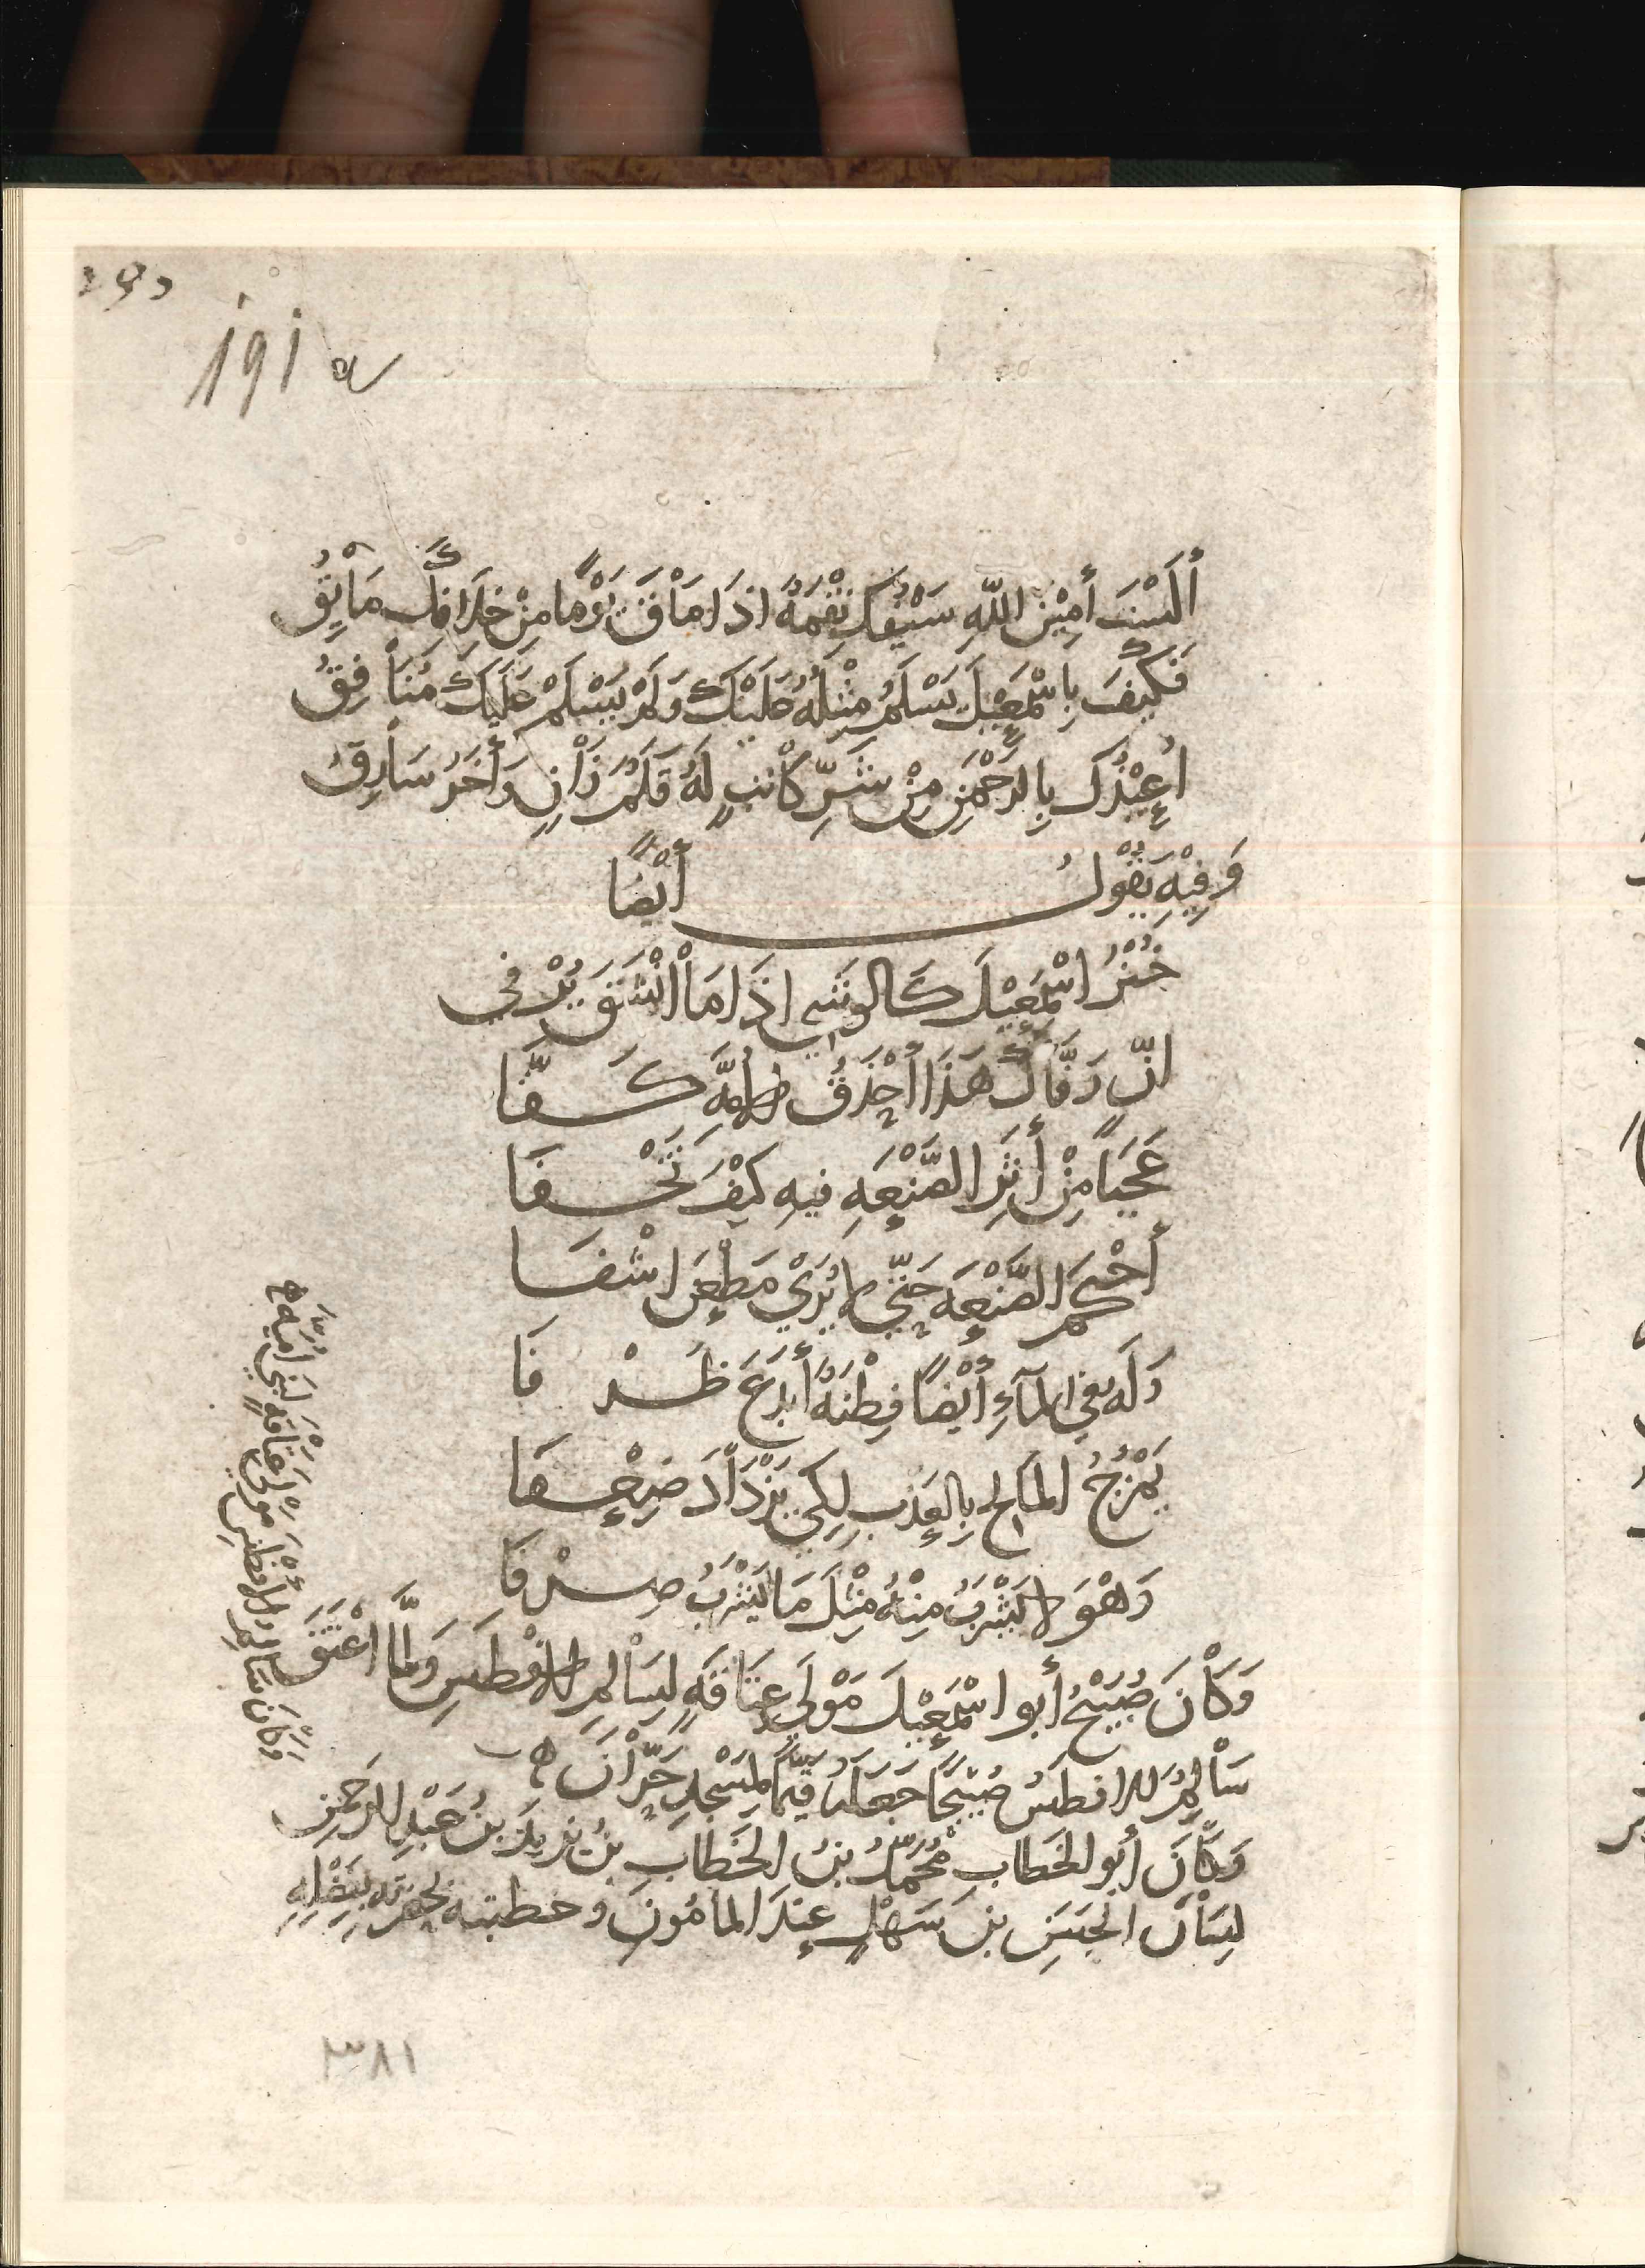 ١٩١
أَلَسْتَ أَمِيْنَ اللّٰهِ سَيْفُكَ نِقْمَةٌ اذَا مَاْقَ يَوْمًا مِنْ خِلَافِكَ مَاْئِقُ
فَكَيْفَ بِاسْمٰعِيْلَ يَسْلَمُ مِثْلُهُ عَلَيْكَ وَلَمْ يَسْلَمْ عَلَيْكَ مُنَاْفِقُ
أُعِيْذُكَ بِالرَّحْمٰنِ مِنْ شَرِّ كَاْتِبٍ لَهُ قَلَمٌ زَاْنٍ وَأَخَرُ سَاْرِقُ
وَفِيْهِ يَقُوْلُ أَيْضًا
خُبْزُ اسْمٰعِيْلَ كَالوَشْيِ اذَا مَاْ انْشَقَّ يُرْفي
انَّ رَفَّاكَ هَذَا أَحْذَقُ الأُمَّةِ كَفَّا
عَجَبًا مِنْ أَثَرِ الصَّنْعَةِ فيهِ كَيْفَ تَخْفَا
أَحْكَمَ الصَّنْعَةَ حَتَّي لا يُرَيْ مَطْعَنَ اشْفَا
وَلَهُ فِي المَآءِ أَيْضًا فِطْنَةٌ أَبدَعَ ظَرْفَا
يَمْزُجُ المَالِحَ بِالعَذبِ لِكَي يَزْدَاْدَ ضِعْفَا
وَهْوَ لا يَشْرَبُ مِنْهُ مِثْلَ مَا يَشْرَبُ صِرْفَا
وَكَاْنَ صُبَيْحٌ أَبو اسْمٰعِيْلَ مَوْلَي عِتَاقَةٍ لِسَاْلِمِ الافْطَسِ وَلَمَّا اعْتَقَ
سَاْلِمٌ الافطَسُ صُبَيْحًا جَعَلَهُ قَيِّمًا لِمَسْجِدِ حَرَّاْنَ
وَكَاْنَ أَبُو الخَطَّابِ مُحَمَّدُ بنُ الخَطَّابِ بنِ يَزِيدَ بنُ عَبْدِ الرَحْمنِ
لِسَاْنَ الحَسَنِ بنَ سَهْلٍ عِنْدَ المأمُونِ وخطبته بحضرته بِفَضْلِهِ
وَكَانَ سَالِمُ الافطسِ مولَي عتاقةٍ لبَنِي أُمَيَّةَ
٣٨١